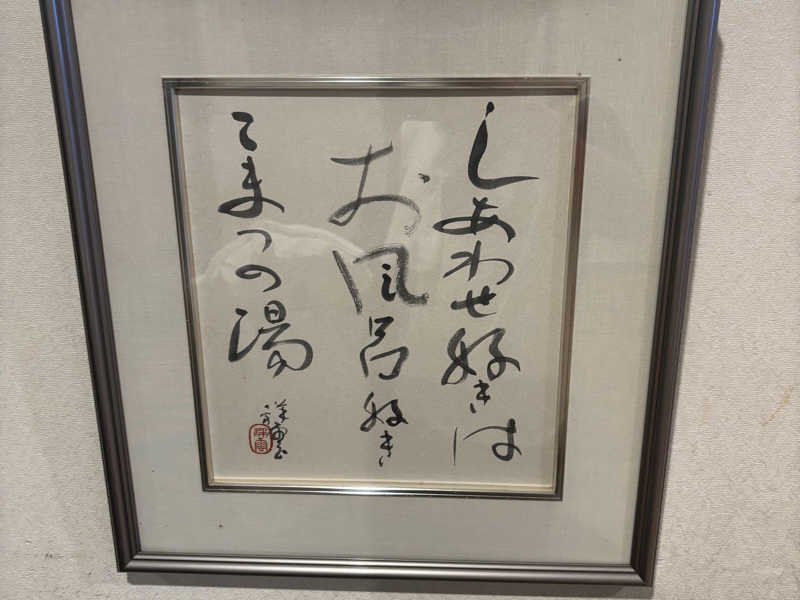 しあわせ好きは
お風呂好き
こまつの湯